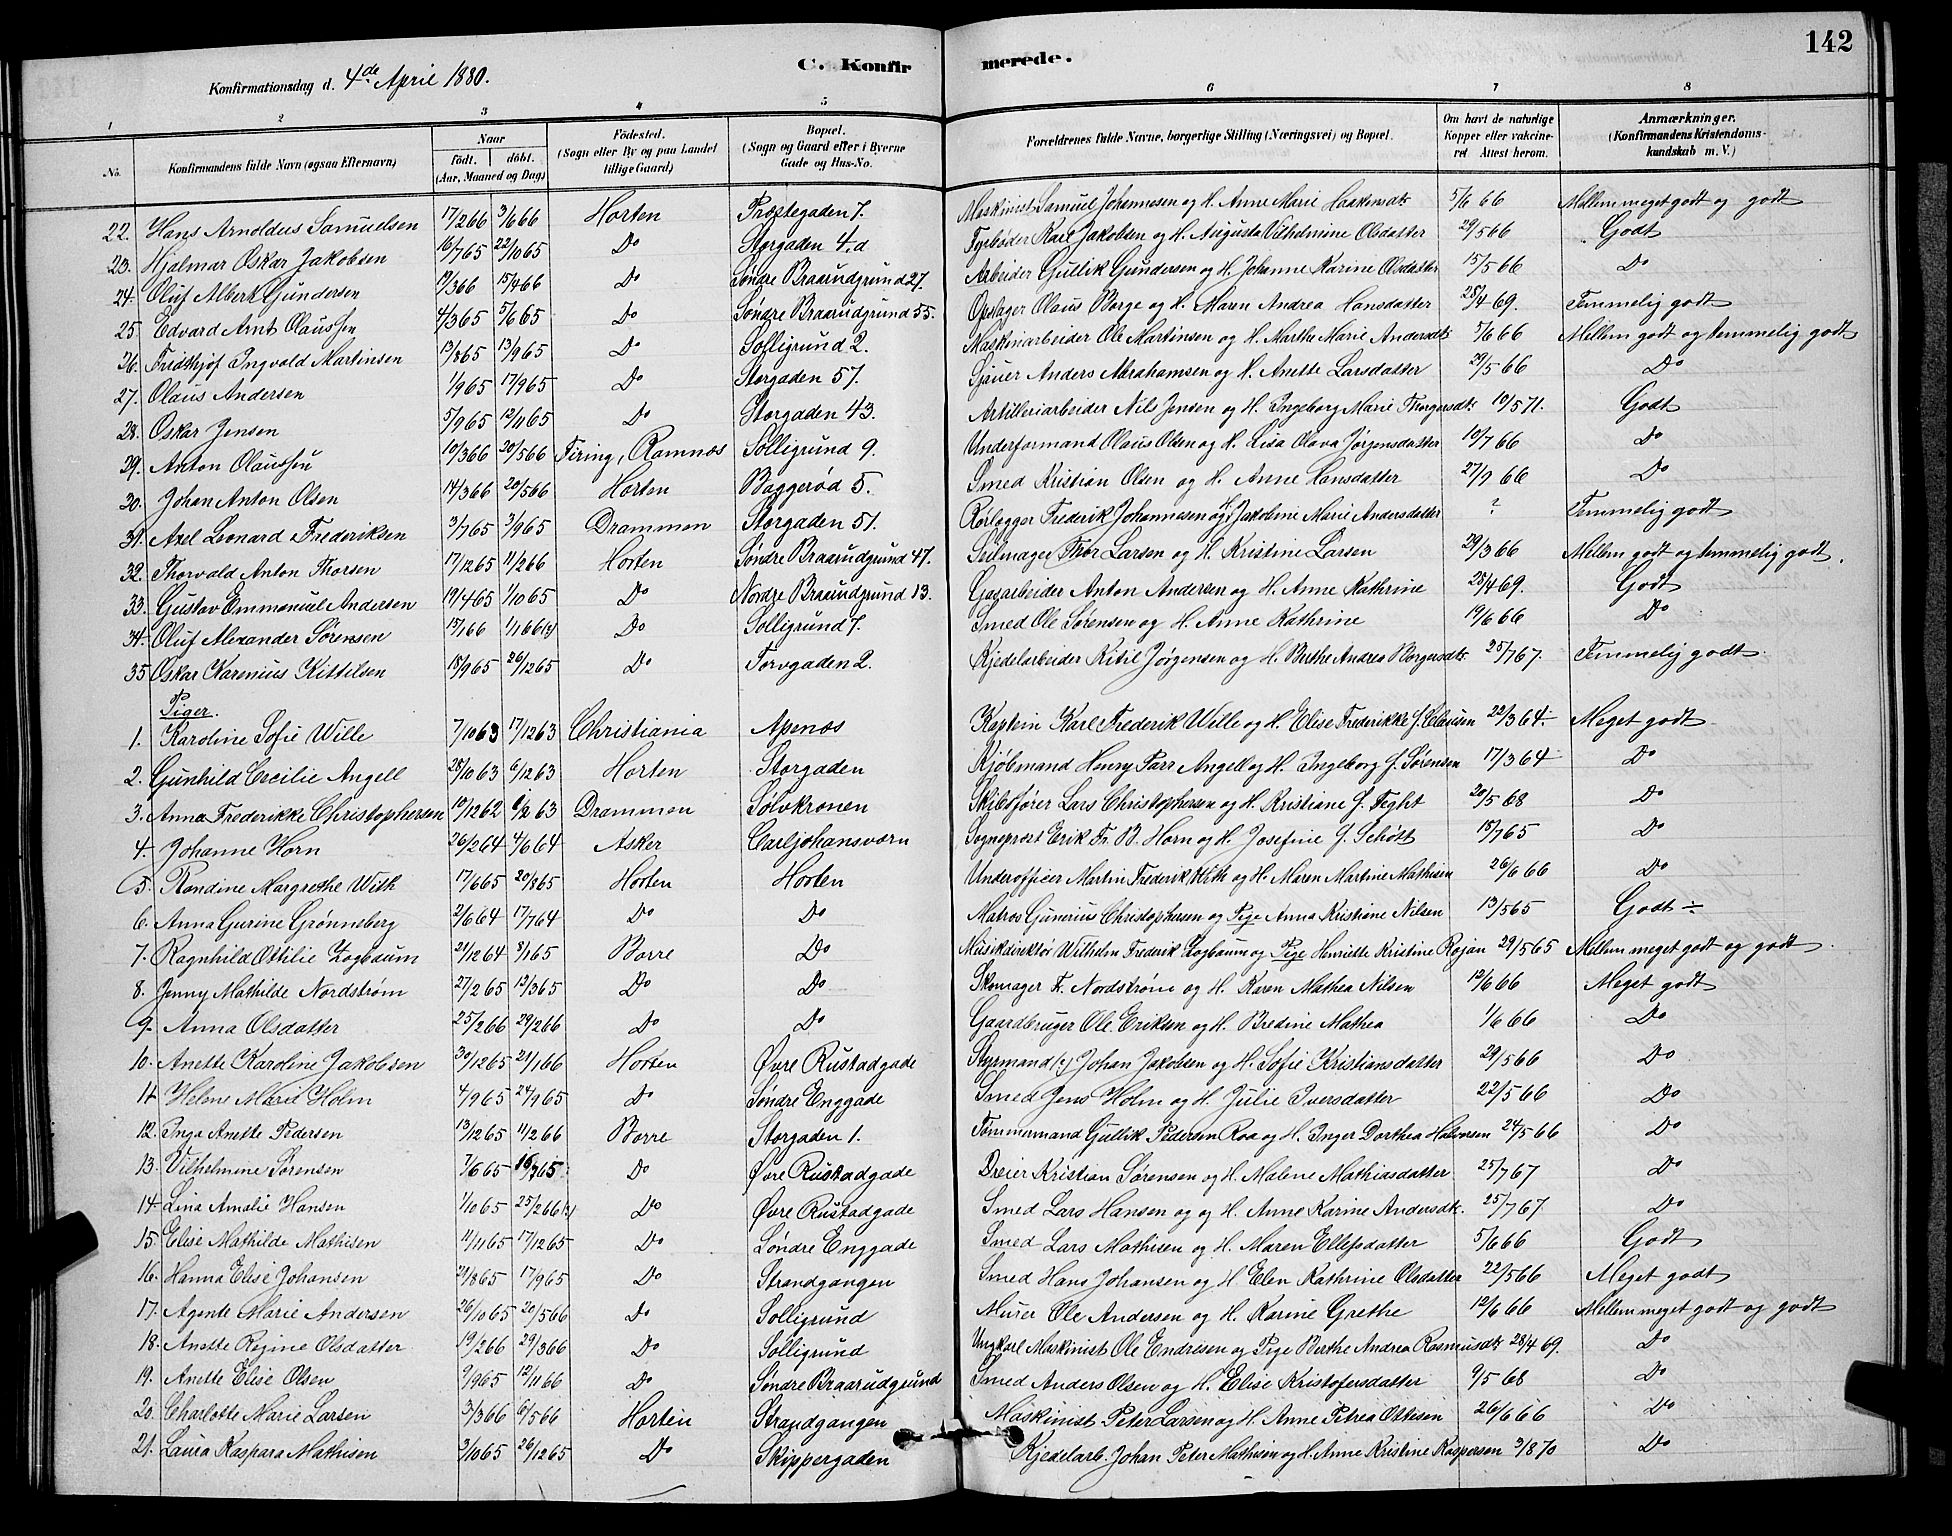 142
C. Konfirmerede.
Konfirmationsdag d. 4de April 1880.
1 2 3 4 5 6 7 8
No. Konfirmandens fulde Navn (ogsaa Efternavn) Naar født. døbt. (Aar, Maaned og Dag) Fødested. (Sogn eller By og paa Landet tillige Gaard) Bopæl. (Sogn og Gaard eller i Byerne Gade og Hus-No. Forældrenes fulde Navne, borgerlige Stilling (Næringsvei) og Bopæl. Om havt de naturlige Kopper eller vakcineret Attest herom. Anmærkninger. (Konfirmandens Kristendomskundskab m. V.)
22. Hans Arnoldus Samuelsen 17/2 66 3/6 66 Horten Præstegaden 7. Maskinist Samuel Johannesen og H. Anne Marie Haakensdt. 5/6 66 Mellem meget godt og godt
23. Hjalmar Oskar Jakobsen 16/7 65 22/10 65 Do Storgaden 4.d Fyrbøder Karl Jakobsen og H. Augusta Vilhelmine Olsdatter 29/5 66 Godt
24. Oluf Albert Gundersen 19/3 66 15/4 66 Do Søndre Braarudgrund 27. Arbeider Gullik Gundersen og H. Johanne Karine Olsdatter 15/5 66 Do
25. Edvard Arnt Olaussen 4/3 65 5/6 65 Do Søndre Braarudgrund 55. Opslager Olaus Borge og H. Maren Andrea Hansdatter 28/4 69. Temmelig godt
26. Fridthjof Ingvald Martinsen 13/8 65 13/9 65 Do Solligrund 2. Maskinarbeider Ole Martinsen og H. Marthe Marie Andersdt. 5/6 66 Mellem godt og temmelig godt
27. Olaus Andersen 1/9 65 17/9 65 Do Storgaden 57. Sjauer Anders Abrahamsen og H. Anette Larsdatter 29/5 66 Do
28. Oskar Jensen 5/9 65 12/11 65 Do Storgaden 43. Artilleriarbeider Nils Jensen og H. Ingeborg Marie Thorgersdt. 19/5 71. Godt
29. Anton Olaussen 10/3 66 20/5 66 Firing, Ramnæs Solligrund 9. Underformand Olaus Olsen og H. Lisa Olava Jørgensdatter 10/7 66 Do
30. Johan Anton Olsen 14/3 66 20/5 66 Horten Baggerød 5. Smed Kristian Olsen og H. Anne Hansdatter 27/9 66 Do
31. Axel Leonard Frederiksen 3/7 65 3/9 65 Drammen Storgaden 51. Rørlægger Frederik Johannesen og H. Jakobine Marie Andersdatter ? Temmelig godt
32. Thorvald Anton Thorsen 17/12 65 11/2 66 Horten Søndre Braarudgrund 47. Seilmager Thor Larsen og H. Kristine Larsen 29/3 66 Mellem godt og temmelig godt.
33. Gustav Emmanuel Andersen 19/4 65 1/10 65 Do Nordre Braarudgrund 13. Gasarbeider Anton Andersen og H. Anne Kathrine 28/4 69. Godt
34. Oluf Alexander Sørensen 15/1 66 1/1 66 (?) Do Solligrund 7. Smed Ole Sørensen og H. Anne Kathrine 19/6 66 Do
35 Oskar Karenius Kittilsen 18/9 65 26/12 65 Do Torvgaden 2. Kjedelarbeider Kitil Jørgensen og H. Berthe Andrea Borgersdt. 25/7 67. Temmelig godt
Piger.
1. Karoline Sofie Wille 7/10 63 17/12 63 Christiania Apenæs Kaptein Karl Frederik Wille og H. Elise Frederikke f. Clausen 22/3 64. Meget godt
2. Gunhild Cecilie Angell 28/10 63 6/12 63 Horten Storgaden Kjøbmand Henry Parr Angell og H. Ingeborg f. Sørensen 17/3 64 Do
3. Anna Frederikke Christophersen 10/12 62 6/2 63 Drammen Sølvkronen Skibsfører Lars Christophersen og H. Kristiane f. Feght 20/5 68 Do
4. Johanne Horn 26/2 64 4/6 64 Asker Carljohansværn Sogneprest Erik Fr. B. Horn og H. Josefine f. Schøtt 18/7 65 Do
5. Randine Margrethe With 17/6 65 20/8 65 Horten Horten Underofficer Martin Frederik With og H. Maren Martine Mathisen 26/6 66 Do
6. Anna Gurine Grønneberg 2/6 64 17/7 64 Do Do Matros Gunerius Christophersen og Pige Anna Kristiane Nilsen 13/5 65 Godt ÷
7. Ragnhild Ottilie Zogbaum 21/12 64 8/1 65 Borre Do Musikdirektør Wilhelm Frederik Zogbaum og Pige Henriette Kristine Rojan 29/5 65 Mellem meget godt og godt
8. Jenny Mathilde Nordstrøm 27/2 65 12/3 65 Do Do Skomager Fr. Nordstrøm og H. Karen Mathea Nilsen 12/6 66 Meget godt
9. Anna Olsdatter 25/2 66 29/2 66 Do Do Gaardbruger Ole Eriksen og H. Bredine Mathea 1/6 66 Do
10. Anette Karoline Jakobsen 30/12 65 21/1 66 Horten Øvre Rustadgade Styrmand (?) Johan Jakobsen og H. Sofie Kristiansdatter 29/5 66 Do
11 Helene Marie Holm 4/9 65 24/9 65 Do Søndre Enggade Smed Jens Holm og H. Julie Iversdatter 22/5 66 Do
12. Inga Anette Pedersen 13/12 65 11/2 66 Borre Storgaden 1. Tømmermand Gullik Pedersen Roa og H. Inger Dorthea Halvorsen 24/5 66 Do
13. Vilhelmine Sørensen 7/6 65 16/7 65 Do Øvre Rustadgade Dreier Kristian Sørensen og H. Malene Mathiasdatter 25/7 67 Do
14. Lina Amalie Hansen 1/10 65 25/2 66 (?) Do Øvre Rustadgade Smed Lars Hansen og og H. Anne Karine Andersdt. 25/7 67. Do
15. Elise Mathilde Mathisen 11/11 65 17/12 65 Do Søndre Enggade Smed Lars Mathisen og H. Maren Ellefsdatter 5/6 66 Godt
16. Hanna Elise Johansen 21/8 65 17/9 65 Do Strandgangen Smed Hans Johansen og H. Elen Kathrine Olsdatter 22/5 66 Meget godt
17. Agente Marie Andersen 26/10 65 20/5 66 Do Solligrund Murer Ole Andersen og H. Karine Grethe 12/6 66 Mellem meget godt og godt
18. Anette Regine Olsdatter 19/2 66 29/3 66 Do Solligrund Ungkarl Maskinist Ole Endresen og Pige Berthe Andrea Rasmusdt. 28/4 69. Do
19. Anette Elise Olsen 9/9 65 12/11 66 Do Søndre Braarudgrund Smed Anders Olsen og H. Elise Kristofersdatter 9/5 68 Do
20. Charlotte Marie Larsen 3/3 66 6/5 66 Horten Strandgangen Maskinist Peter Larsen og H. Anne Petrea Ottisen 26/6 66 Do
21. Laura Kaspara Mathisen 3/10 65 26/12 65 Do Skippergaden Kjedelarb. Johan Peter Mathisen og H. Anne Kristine Kaspersen 3/8 70 Do